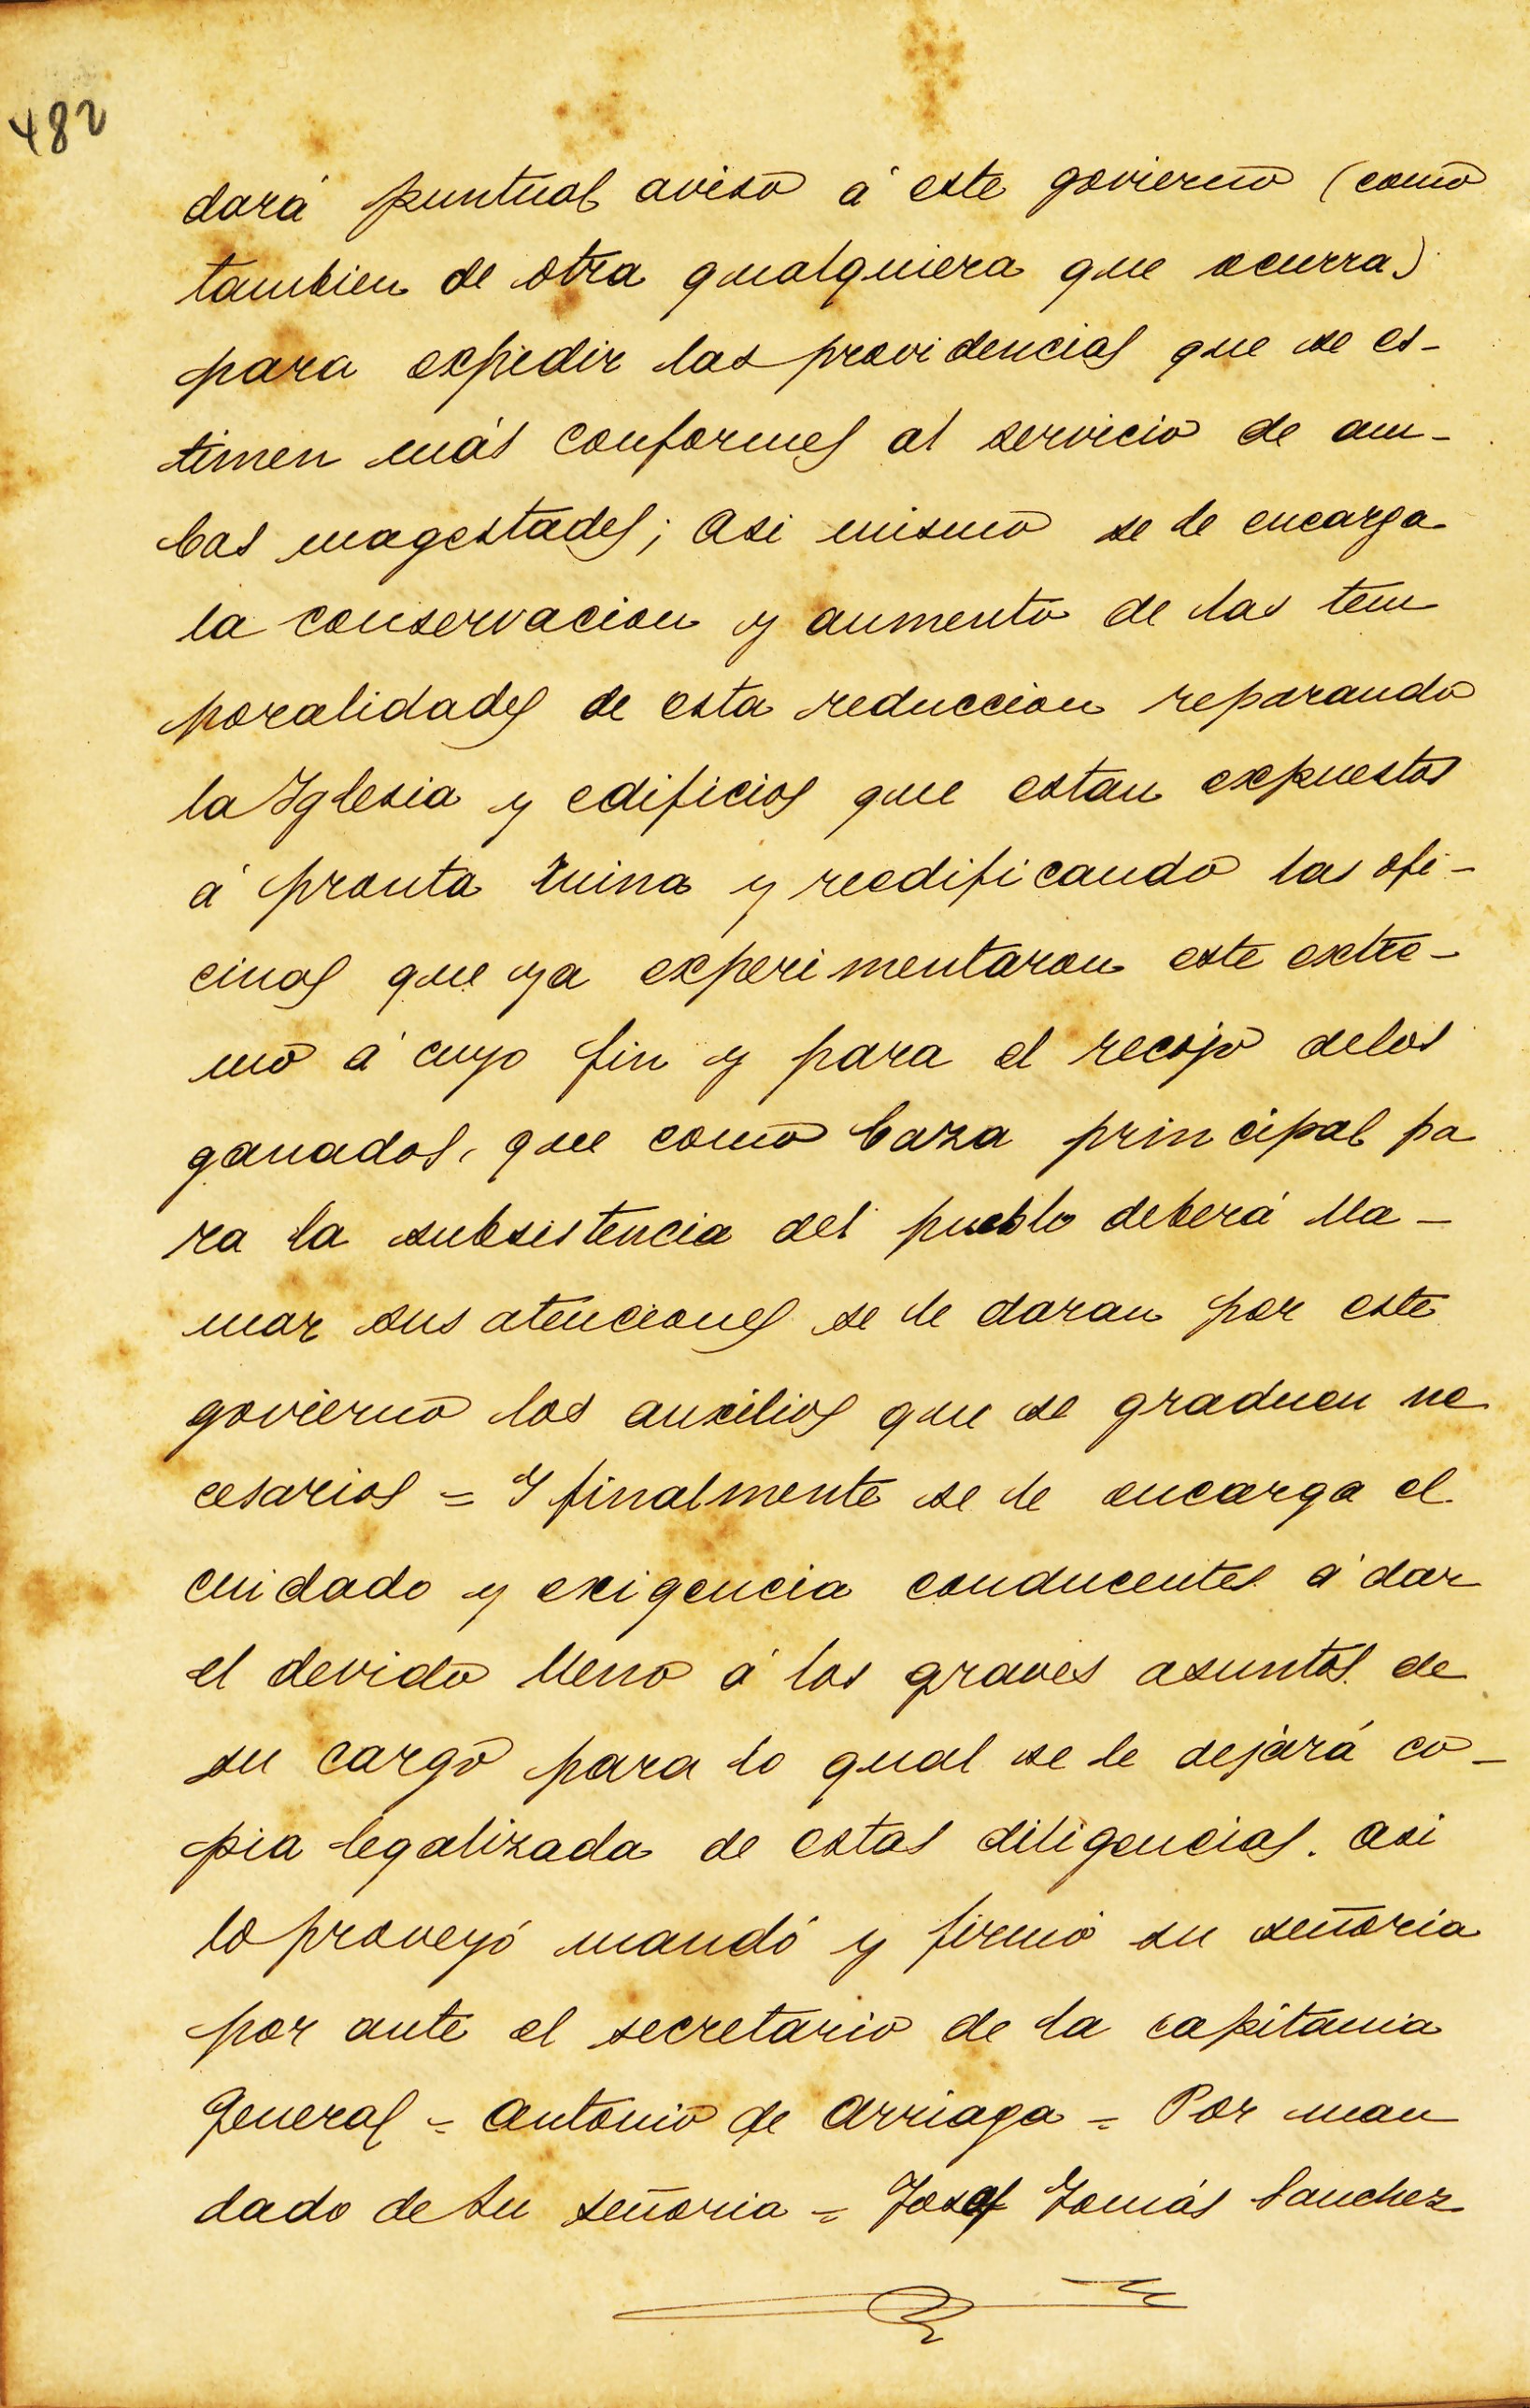 482
dará puntual aviso á este govierno (como
tambien de otra qualquiera que ocurra)
para expedir las providencias que se es-
timen más conformes al servicio de am-
bas magestades; Asi mismo se le encarga
la conservacion y aumento de las tem
poralidades de esta reduccion reparando
la Iglesia y edificios que estan expuestos
á pronta ruina y reedificando las ofi-
cinas que ya experimentaron este extre-
mo á cuyo fin y para el recojo delos
ganados, que como baza principal pa
ra la subsistencia del pueblo deberá lla-
mar sus atenciones se le daran por este
govierno los auxilios que se graduen ne
cesarios = Y finalmente se le encarga el
cuidado y exigencia conducentes á dar
el devido lleno á los graves asuntos de
su cargo para lo qual se le dejará co-
pia legalizada de estas diligencias. Asi
lo proveyó mandó y firmó su señoria
por ante el secretario de la capitania
General = Antonio de Arriaga = Por man
dado de Su Señoria = Josef Tomás Sanchez